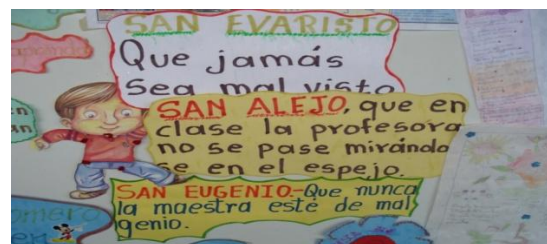 SAN EVARISTO
Que jamás
Sea mal visto
SAN ALEJO, que en
clase la profesora
no se pase mirándo
se en el espejo.
SAN EUGENIO.-Que nunca
la maestra esté de mal
genio.